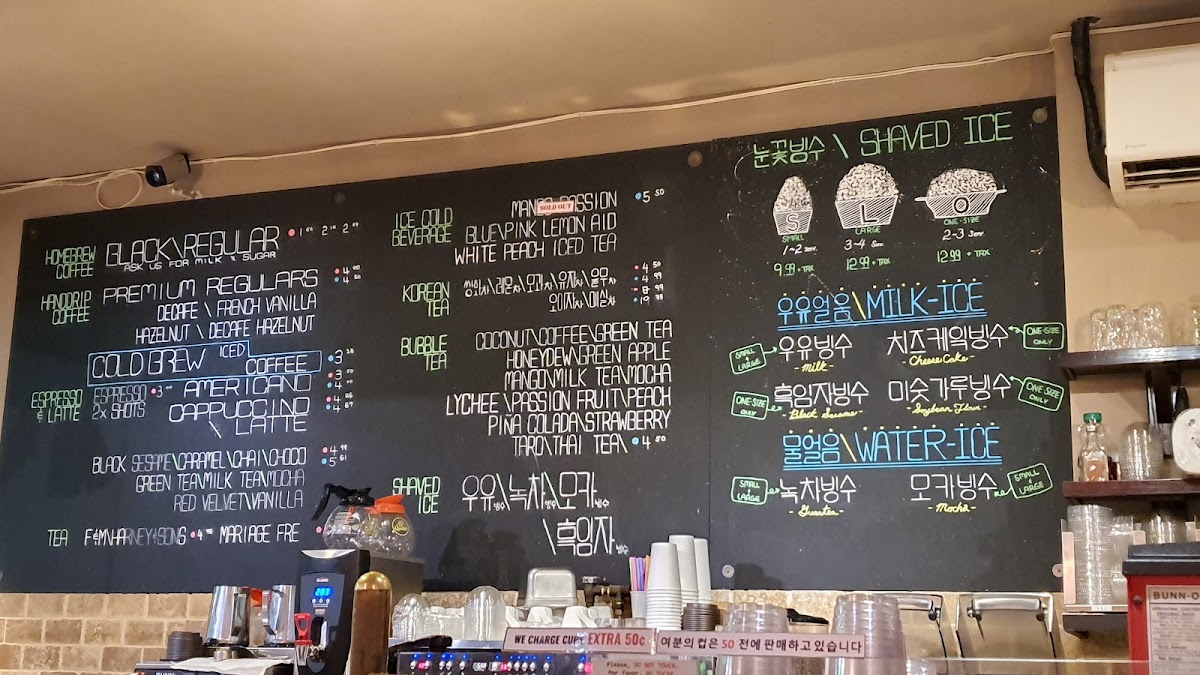 HOMEBREW
COFFEE
BLACK\REGULAR
ASK US FOR MILK & SUGAR
HANDDRIP
COFFEE
PREMIUM REGULARS
4.00
4.50
DECAFE \ FRENCH VANILLA
HAZELNUT \ DECAFE HAZELNUT
COLD BREW ICED COFFEE
ESPRESSO
& LATTE
ESPRESSO
2X SHOTS
AMERICANO
CAPPUCCINO
\ LATTE
BLACK SESAME\CARAMEL\CHAI\CHOCO
4.99
GREEN TEA\MILK TEA\MOCHA
RED VELVET\VANILLA
TEA
F&M\HARNEY&SONS
MARIAGE FRE
ICE COLD
BEVERAGE
MANGO PASSION
SOLD OUT
5.50
BLUE\PINK LEMON AID
WHITE PEACH ICED TEA
KOREAN
TEA
4.50
4.99
BUBBLE
TEA
COCONUT\COFFEE\GREEN TEA
HONEYDEW\GREEN APPLE
MANGO\MILK TEA\MOCHA
LYCHEE\PASSION FRUIT\PEACH
PIÑA COLADA\STRAWBERRY
TARO\THAI TEA\
4.50
SHAVED
ICE
우유빙수\녹차빙수\모카빙수
\흑임자빙수
눈꽃빙수 \ SHAVED ICE
S
L
O
SMALL
LARGE
ONE-SIZE
1-2 Serv.
3-4 Serv.
2-3 Serv.
9.99 + TAX
12.99 + TAX
12.99 + TAX
우유얼음\MILK-ICE
SMALL & LARGE
우유빙수
- Milk -
치즈케익빙수
- Cheese Cake -
ONE-SIZE ONLY
ONE-SIZE ONLY
흑임자빙수
- Black Sesame -
미숫가루빙수
- Soybean Flour -
ONE-SIZE ONLY
물얼음\WATER-ICE
SMALL & LARGE
녹차빙수
- Greentea -
모카빙수
- Mocha -
SMALL & LARGE
WE CHARGE CUPS EXTRA 50¢
여분의컵은 50 전에 판매하고있습니다
Please, DO NOT TOUCH.
BUNN-O